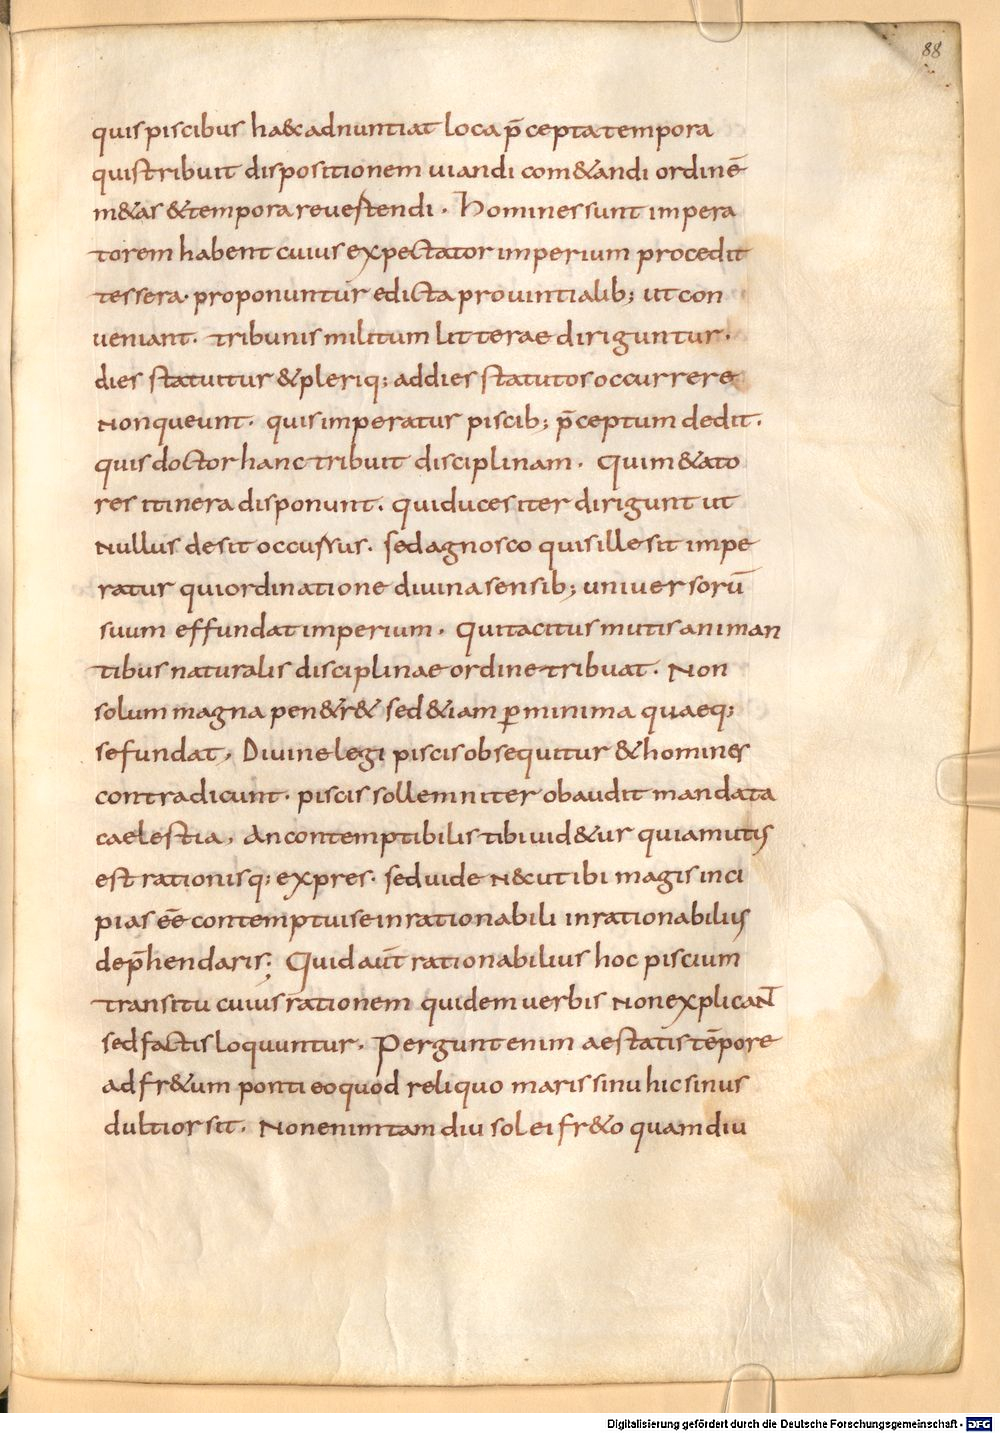 88
quis piscibus ha&c adnuntiat loca p̄cepta tempora
quis tribuit dispositionem uiandi com&andi ordinē
m&as &tempora reuertendi. Homines sunt impera
torem habent cuius expectator imperium procedit
tessera. proponuntur edicta prouintialib; ut con
ueniant. tribunis militum litterae diriguntur.
dies statuitur &pleriq; ad dies statutos occurrere
Nonqueunt. quis imperatur piscib; p̄ceptum dedit.
quis doctor hanc tribuit disciplinam. Qui m&ato
res itinera disponunt. qui duces iter dirigunt ut
Nullus desit occussus. sed agnosco quis ille sit impe
ratur qui ordinatione diuina sensib; uniuersorū
suum effundat imperium. Qui tacitus mutis animan
tibus naturalis disciplinae ordine tribuat. Non
solum magna pen&r& sed &iam ꝑ minima quaeq;
se fundat, Diuine legi piscis obsequitur &homines
contradicunt. piscis sollemniter obaudit mandata
caelestia, An contemptibilis tibi uid&ur quia mutis
est rationisq; expres. sed uide N&cut ibi magis inci
pias eē contemptui se inrationabili inrationabilius
dep̄hendaris; Quid aūt rationabilius hoc piscium
transitu cuius rationem quidem uerbis Nonexplicaɴ̄
sed factis loquuntur. Pergunt enim aestatis tēpore
ad fr&um ponti eo quod reliquo maris sinu hic sinus
dultior sit. Non enim tam diu sol ei fr&o quam diu
Digitalisierung gefördert durch die Deutsche Forschungsgemeinschaft - DFG